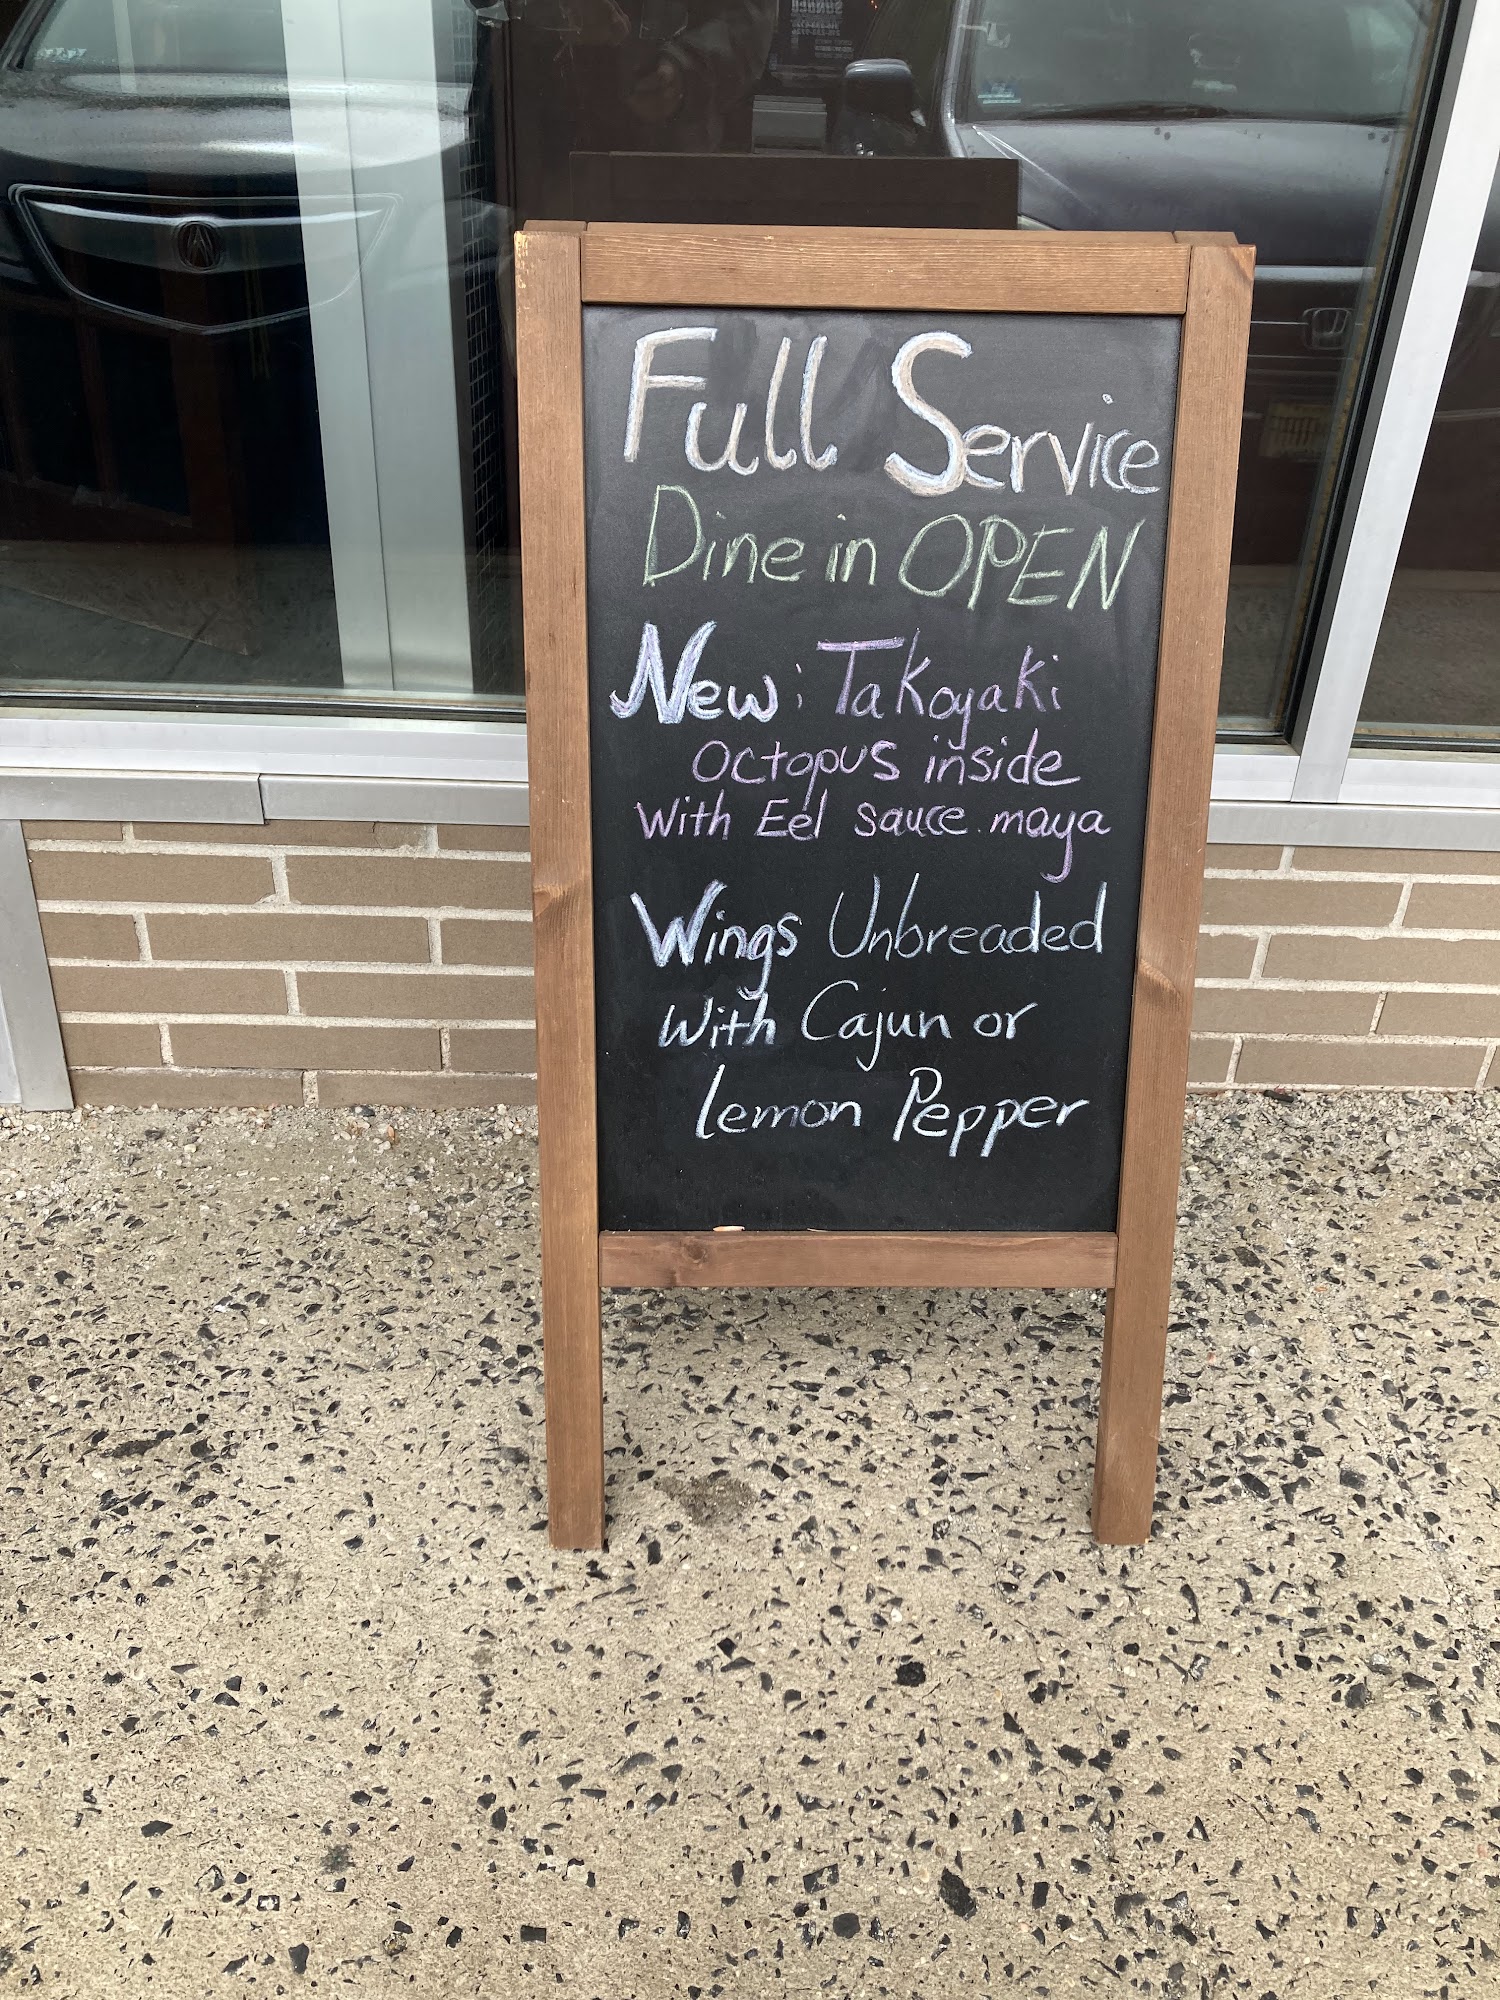 Full Service
Dine in OPEN
New: Takoyaki
octopus inside
with Eel sauce. maya
Wings Unbreaded
with Cajun or
lemon Pepper